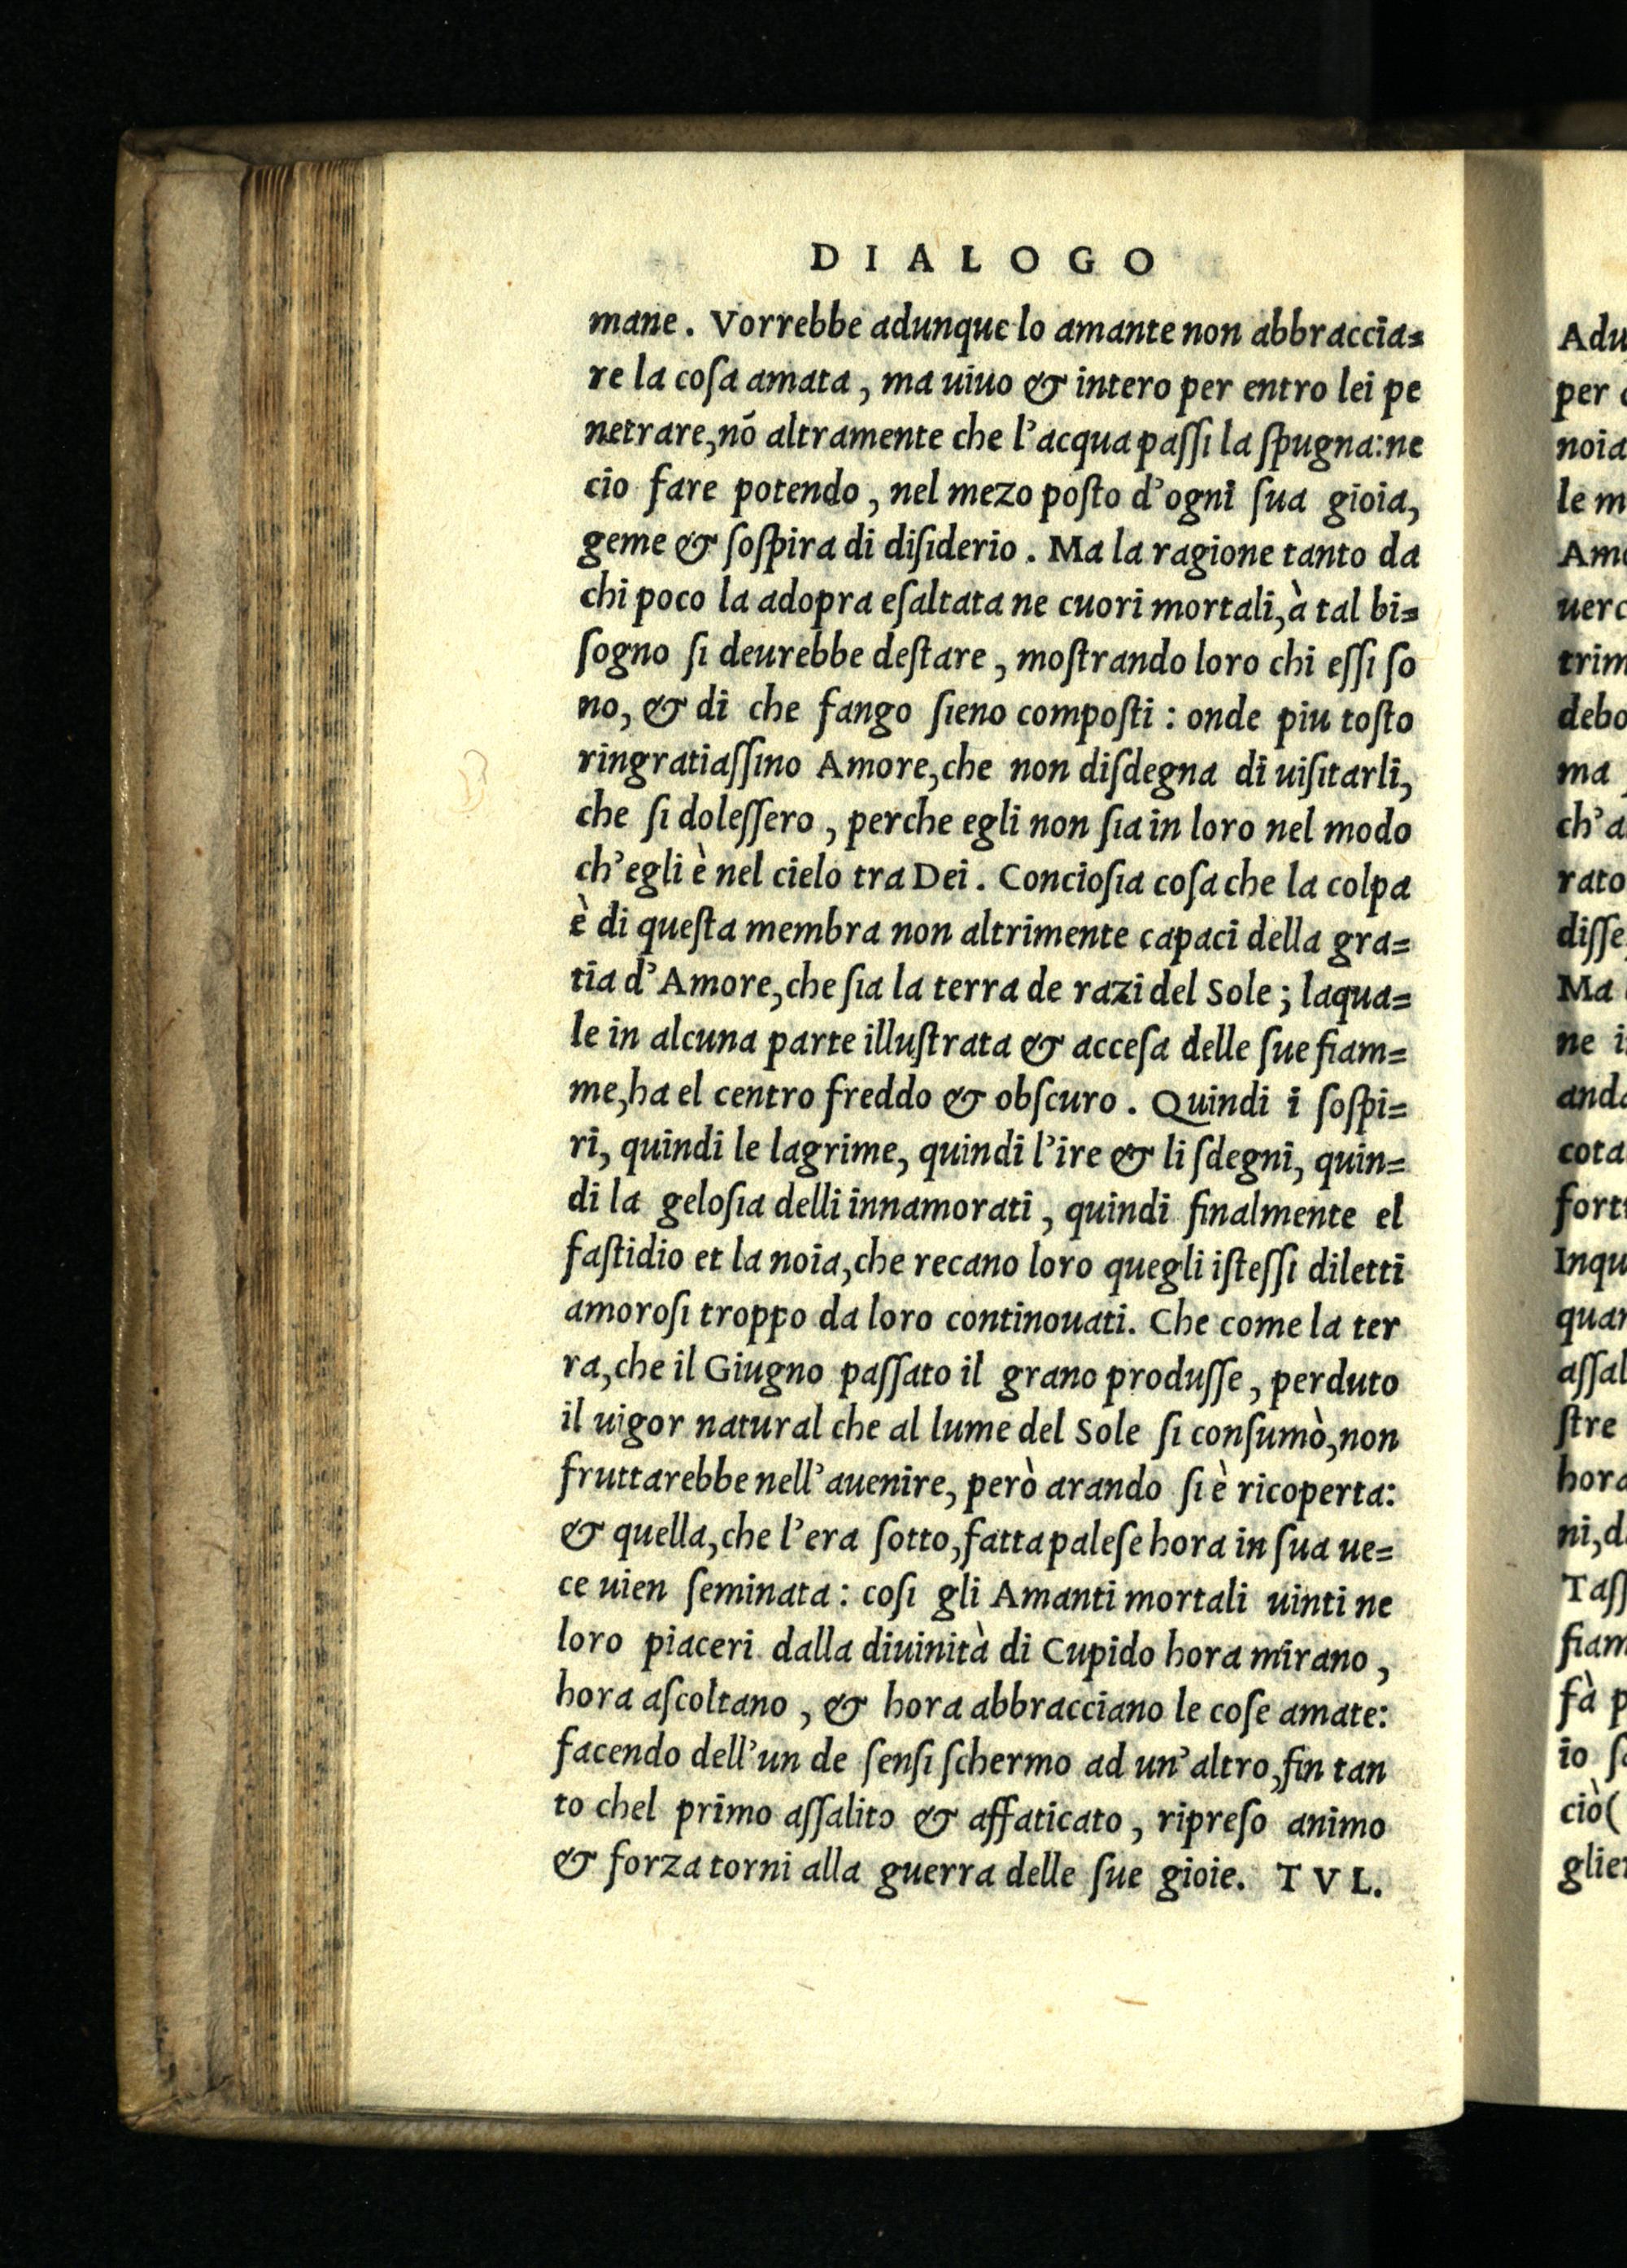 DIALOGO
mane. Vorrebbe adunque lo amante non abbraccia=
re la coſa amata, ma uiuo & intero per entro lei pe
netrare, nõ altramente che l'acqua paſſi la ſpugna: ne
cio fare potendo, nel mezo poſto d'ogni ſua gioia,
geme & ſoſpira di diſiderio. Ma la ragione tanto da
chi poco la adopra eſaltata ne cuori mortali, à tal bi=
ſogno ſi deurebbe deſtare, moſtrando loro chi eſſi ſo
no, & di che fango ſieno compoſti: onde piu toſto
ringratiaſſino Amore, che non diſdegna di uiſitarli,
che ſi doleſſero, perche egli non ſia in loro nel modo
ch'egli è nel cielo tra Dei. Concioſia coſa che la colpa
è di queſta membra non altrimente capaci della gra=
tia d'Amore, che ſia la terra de razi del Sole; laqua=
le in alcuna parte illuſtrata & acceſa delle ſue fiam=
me, ha el centro freddo & obſcuro. Quindi i ſoſpi=
ri, quindi le lagrime, quindi l'ire & li ſdegni, quin=
di la geloſia delli innamorati, quindi finalmente el
faſtidio et la noia, che recano loro quegli iſteſſi diletti
amoroſi troppo da loro continouati. Che come la ter
ra, che il Giugno paſſato il grano produſſe, perduto
il uigor natural che al lume del Sole ſi conſumò, non
fruttarebbe nell'auenire, però arando ſi è ricoperta:
& quella, che l'era ſotto, fatta paleſe hora in ſua ue=
ce uien ſeminata: coſi gli Amanti mortali uinti ne
loro piaceri dalla diuinità di Cupido hora mirano,
hora aſcoltano, & hora abbracciano le coſe amate:
facendo dell'un de ſenſi ſchermo ad un'altro, fin tan
to chel primo aſſalito & affaticato, ripreſo animo
& forza torni alla guerra delle ſue gioie. TVL.
Adu
per
noia
le m
Amo
uerc
trim
debo
ma
ch'a
rato
diſſe
Ma
ne i
anda
cota
fort
Inqu
quan
aſſal
ſtre
hora
ni, d
Taſſ
fiam
fà p
io ſ
ciò(
glie